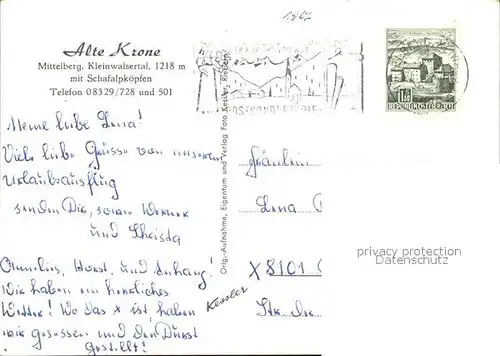 1967
Alte Krone
Mittelberg, Kleinwalsertal, 1218 m
mit Schafalpköpfen
Telefon 08329/728 und 501
Meine liebe Lena!
Viele liebe Grüsse von unserem
Urlaubsausflug
senden Dir, sowie Werner
und Christa
Omnelius, Horst, und Anhang!
Wir haben ein herrliches
Wetter! Wo das x ist, haben
wir gesessen und den Durst
gestillt!
Orig.-Aufnahme, Eigentum und Verlag Foto Kessler, Riezlern
Kessler
REPUBLIK ÖSTERREICH
Fräulein
Lena
X 8101
Str. der
privacy protection
Datenschutz